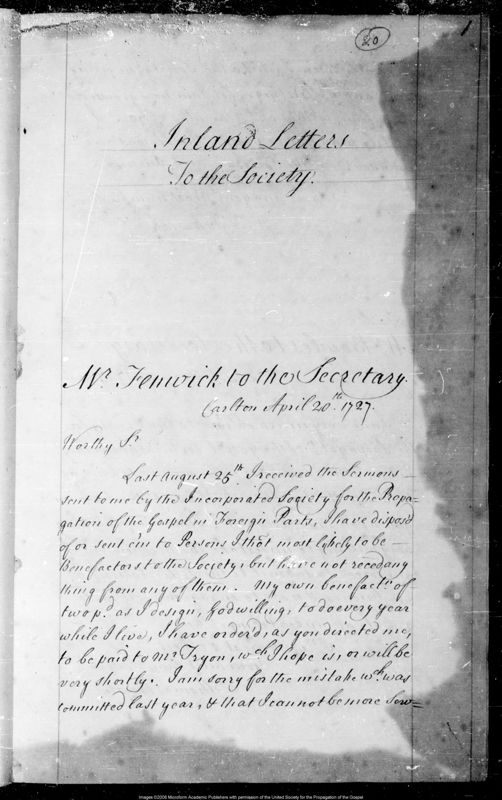 20
1
Inland Letters
To the Society.
Mr. Fenwick to the Secretary.
Carlton April 20th. 1727.
Worthy Sr
Last August 25th I received the Sermons
sent to me by the Incorporated Society for the Propa=
gation of the Gospel in Foreign Parts, I have dispos'd
of or sent e'm to Persons I tho't most likely to be
Benefactors to the Society, but have not reced any
thing from any of them. My own benefactn. of
two pd. as I design, God willing, to do every year
while I live, I have order'd, as you directed me,
to be paid to Mr Tryon, wch. I hope is, or will be
very shortly. I am sorry for the mistake wch. was
committed last year, & that I cannot be more Serv=
Images ©2006 Microform Academic Publishers with permission of the United Society for the Propagation of the Gospel